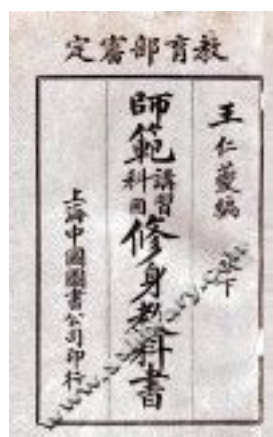 教育部審定
王仁夔編 下
師範講習科用修身教科書
上海中國圖書公司印行